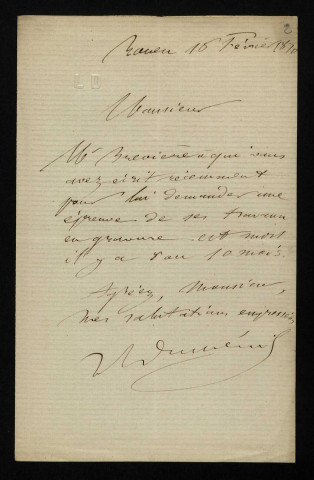 2
Rouen 16 Février
Monsieur
Mr Brevière à qui vous
avez écrit récemment
pour lui demander une
épreuve de ses travaux
en gravure est mort
il y a 10 mois.
Agréez, Monsieur,
mes salutations empressées